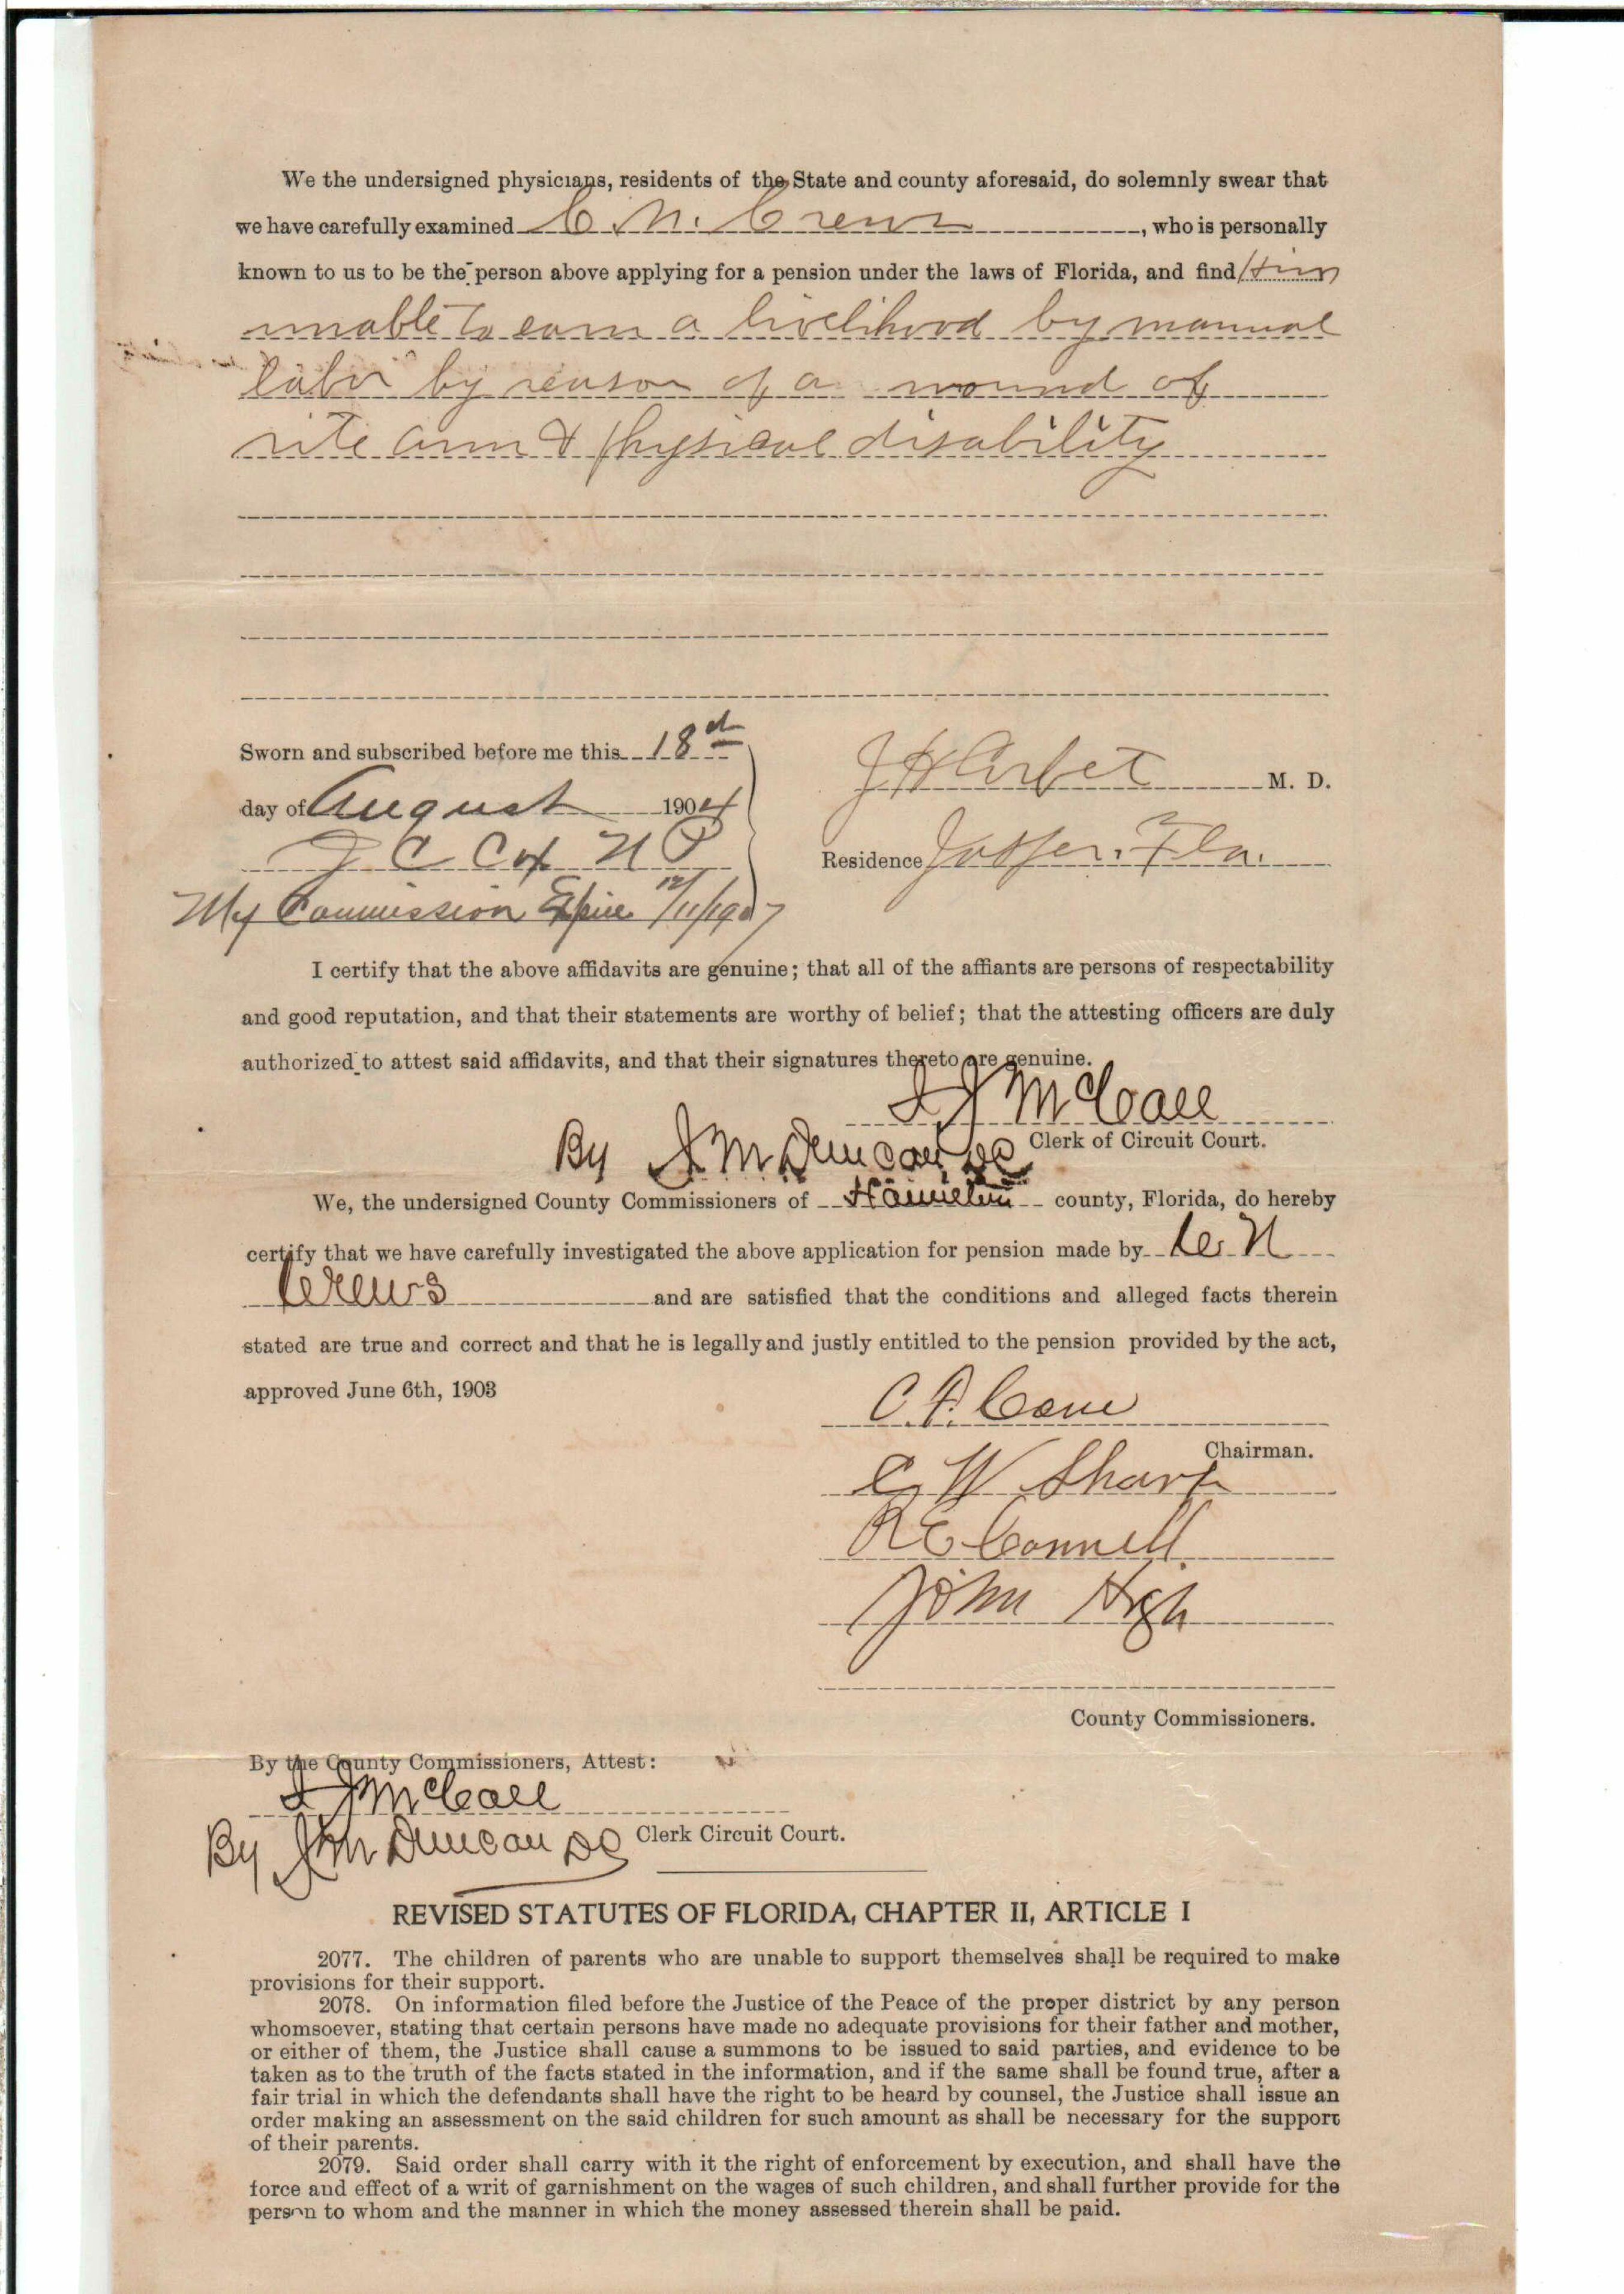 We the undersigned physicians, residents of the State and county aforesaid, do solemnly swear that
we have carefully examined C. N. Crews, who is personally
known to us to be the person above applying for a pension under the laws of Florida, and find Him
unable to earn a livelihood by manual
labor by reason of a wound of
rite arm & physical disability
Sworn and subscribed before me this 18th
day of August 1904
J C Cox N P
My Commission Expire 12/11/1907
M. D.
Residence Jasper. Fla.
I certify that the above affidavits are genuine; that all of the affiants are persons of respectability
and good reputation, and that their statements are worthy of belief; that the attesting officers are duly
authorized to attest said affidavits, and that their signatures thereto are genuine.
McCall
Clerk of Circuit Court.
By J. M Duncan, DC
We, the undersigned County Commissioners of Hamilton county, Florida, do hereby
certify that we have carefully investigated the above application for pension made by C. N
Crews and are satisfied that the conditions and alleged facts therein
stated are true and correct and that he is legally and justly entitled to the pension provided by the act,
approved June 6th, 1903
C. A.
Chairman.
C W Sharp
R E Connell
John High
County Commissioners.
By the County Commissioners, Attest:
McCall
Clerk Circuit Court.
By J M Duncan DC
REVISED STATUTES OF FLORIDA, CHAPTER II, ARTICLE I
2077. The children of parents who are unable to support themselves shall be required to make
provisions for their support.
2078. On information filed before the Justice of the Peace of the proper district by any person
whomsoever, stating that certain persons have made no adequate provisions for their father and mother,
or either of them, the Justice shall cause a summons to be issued to said parties, and evidence to be
taken as to the truth of the facts stated in the information, and if the same shall be found true, after a
fair trial in which the defendants shall have the right to be heard by counsel, the Justice shall issue an
order making an assessment on the said children for such amount as shall be necessary for the support
of their parents.
2079. Said order shall carry with it the right of enforcement by execution, and shall have the
force and effect of a writ of garnishment on the wages of such children, and shall further provide for the
person to whom and the manner in which the money assessed therein shall be paid.